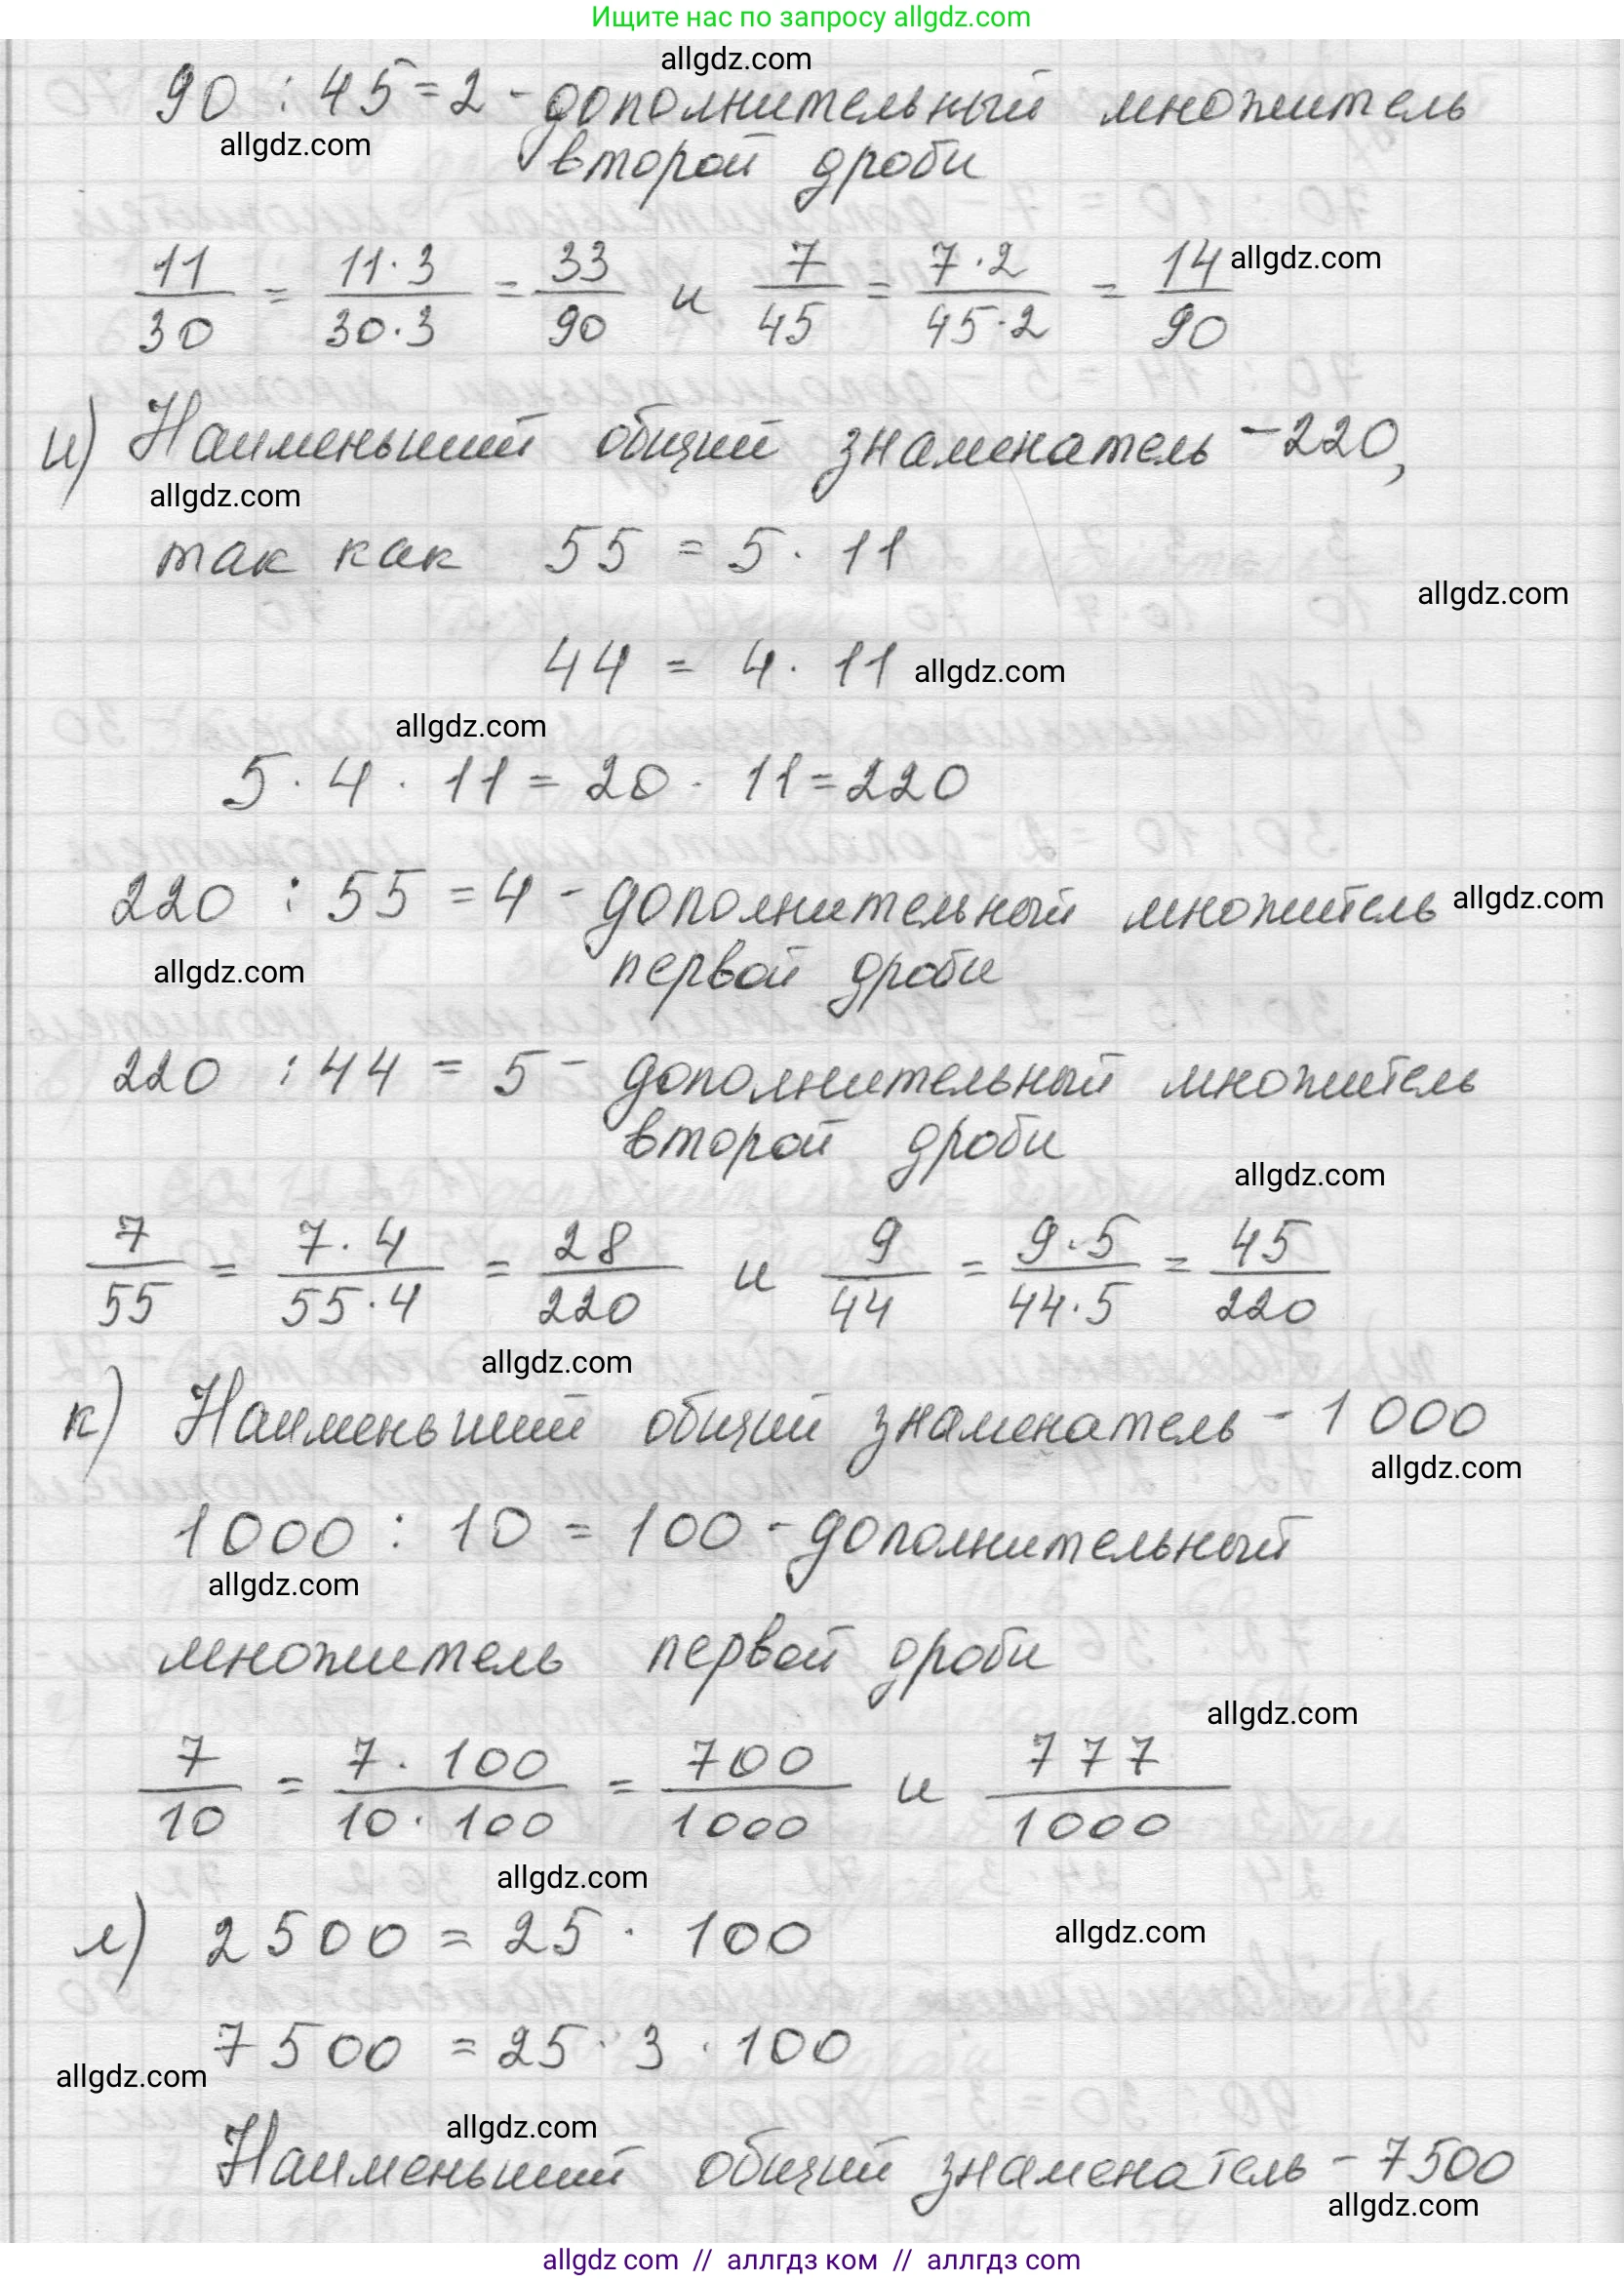 Ищите нас по запросу allgdz.com
allgdz.com
90 : 45 = 2 - дополнительный множитель
allgdz.com
второй дроби
11/30 = 11·3/30·3 = 33/90 и 7/45 = 7·2/45·2 = 14/90 allgdz.com
и) Наименьший общий знаменатель - 220,
allgdz.com
так как 55 = 5 · 11
allgdz.com
44 = 4 · 11 allgdz.com
allgdz.com
5 · 4 · 11 = 20 · 11 = 220
220 : 55 = 4 - дополнительный множитель allgdz.com
allgdz.com первой дроби
220 : 44 = 5 - дополнительный множитель
второй дроби
allgdz.com
7/55 = 7·4/55·4 = 28/220 и 9/44 = 9·5/44·5 = 45/220
allgdz.com
к) Наименьший общий знаменатель - 1000
allgdz.com
1000 : 10 = 100 - дополнительный
allgdz.com
множитель первой дроби
allgdz.com
7/10 = 7·100/10·100 = 700/1000 и 777/1000
allgdz.com
л) 2500 = 25 · 100
allgdz.com
7500 = 25 · 3 · 100
allgdz.com
allgdz.com
Наименьший общий знаменатель - 7500
allgdz.com
allgdz com // аллгдз ком // аллгдз com